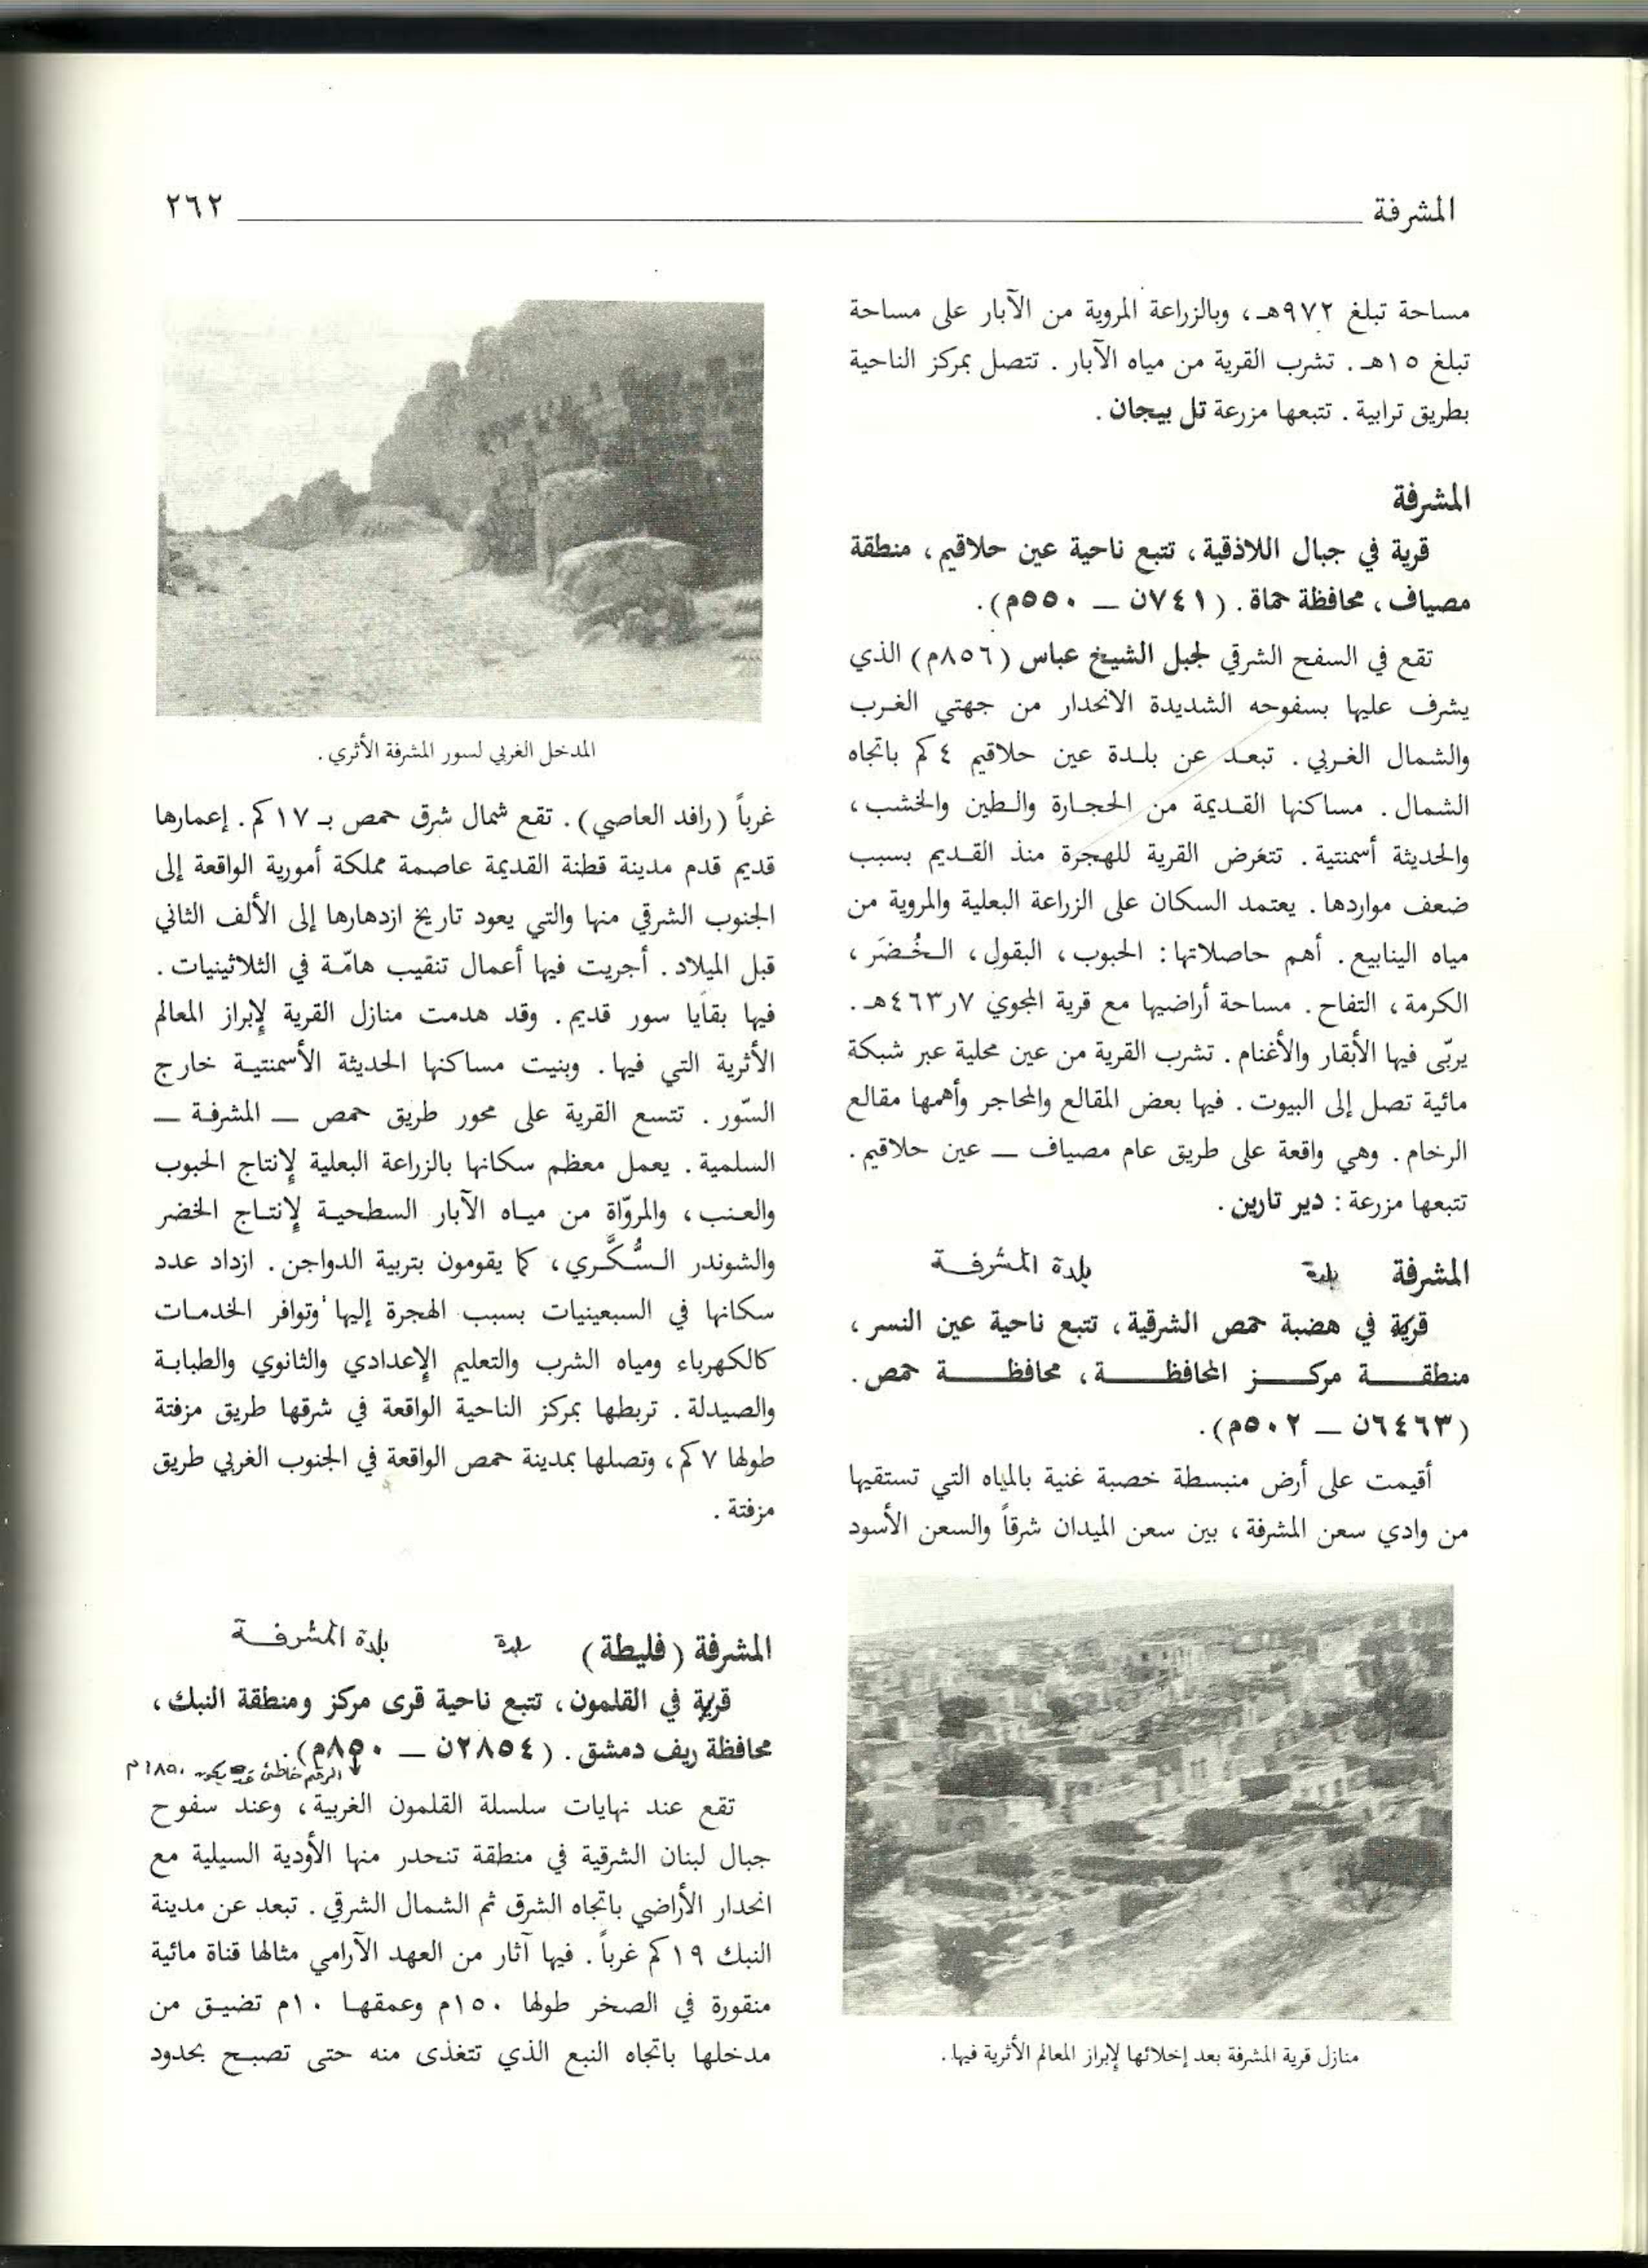 المشرفة ٢٦٢
مساحة تبلغ ٩٧٢هـ، وبالزراعة المروية من الآبار على مساحة
تبلغ ١٥هـ. تشرب القرية من مياه الآبار. تتصل بمركز الناحية
بطريق ترابية. تتبعها مزرعة تل بيجان.
المشرفة
قرية في جبال اللاذقية، تتبع ناحية عين حلاقيم، منطقة
مصياف، محافظة حماة. (٧٤١ن — ٥٥٠م).
تقع في السفح الشرقي لجبل الشيخ عباس (٨٥٦م) الذي
يشرف عليها بسفوحه الشديدة الانحدار من جهتي الغرب
والشمال الغربي. تبعد عن بلدة عين حلاقيم ٤ كم باتجاه
الشمال. مساكنها القديمة من الحجارة والطين والخشب،
والحديثة أسمنتية. تتعرض القرية للهجرة منذ القديم بسبب
ضعف مواردها. يعتمد السكان على الزراعة البعلية والمروية من
مياه الينابيع. أهم حاصلاتها: الحبوب، البقول، الخُضَر،
الكرمة، التفاح. مساحة أراضيها مع قرية المجوي ٧ر٤٦٣هـ.
يربّى فيها الأبقار والأغنام. تشرب القرية من عين محلية عبر شبكة
مائية تصل إلى البيوت. فيها بعض المقالع والمحاجر وأهمها مقالع
الرخام. وهي واقعة على طريق عام مصياف — عين حلاقيم.
تتبعها مزرعة: دير تارين.
المشرفة بلدة بلدة المشرفة
قرية في هضبة حمص الشرقية، تتبع ناحية عين النسر،
منطقة مركز المحافظة، محافظة حمص.
(٦٤٦٣ن — ٥٠٢م).
أقيمت على أرض منبسطة خصبة غنية بالمياه التي تستقيها
من وادي سعن المشرفة، بين سعن الميدان شرقاً والسعن الأسود
منازل قرية المشرفة بعد إخلائها لإبراز المعالم الأثرية فيها.
المدخل الغربي لسور المشرفة الأثري.
غرباً (رافد العاصي). تقع شمال شرق حمص بـ ١٧ كم. إعمارها
قديم قدم مدينة قطنة القديمة عاصمة مملكة أمورية الواقعة إلى
الجنوب الشرقي منها والتي يعود تاريخ ازدهارها إلى الألف الثاني
قبل الميلاد. أجريت فيها أعمال تنقيب هامّة في الثلاثينيات.
فيها بقايا سور قديم. وقد هدمت منازل القرية لإبراز المعالم
الأثرية التي فيها. وبنيت مساكنها الحديثة الأسمنتية خارج
السّور. تتسع القرية على محور طريق حمص — المشرفة —
السلمية. يعمل معظم سكانها بالزراعة البعلية لإنتاج الحبوب
والعنب، والمروّاة من مياه الآبار السطحية لإنتاج الخضر
والشوندر السُّكَّري، كما يقومون بتربية الدواجن. ازداد عدد
سكانها في السبعينيات بسبب الهجرة إليها وتوافر الخدمات
كالكهرباء ومياه الشرب والتعليم الإعدادي والثانوي والطبابة
والصيدلة. تربطها بمركز الناحية الواقعة في شرقها طريق مزفتة
طولها ٧ كم، وتصلها بمدينة حمص الواقعة في الجنوب الغربي طريق
مزفتة.
المشرفة (فليطة) بلدة بلدة المشرفة
قرية في القلمون، تتبع ناحية قرى مركز ومنطقة النبك،
محافظة ريف دمشق. (٢٨٥٤ن — ٨٥٠م).
الرقم خاطئ قد يكون ١٨٥٠م
تقع عند نهايات سلسلة القلمون الغربية، وعند سفوح
جبال لبنان الشرقية في منطقة تنحدر منها الأودية السيلية مع
انحدار الأراضي باتجاه الشرق ثم الشمال الشرقي. تبعد عن مدينة
النبك ١٩ كم غرباً. فيها آثار من العهد الآرامي مثالها قناة مائية
منقورة في الصخر طولها ١٥٠م وعمقها ١٠م تضيق من
مدخلها باتجاه النبع الذي تتغذى منه حتى تصبح بحدود